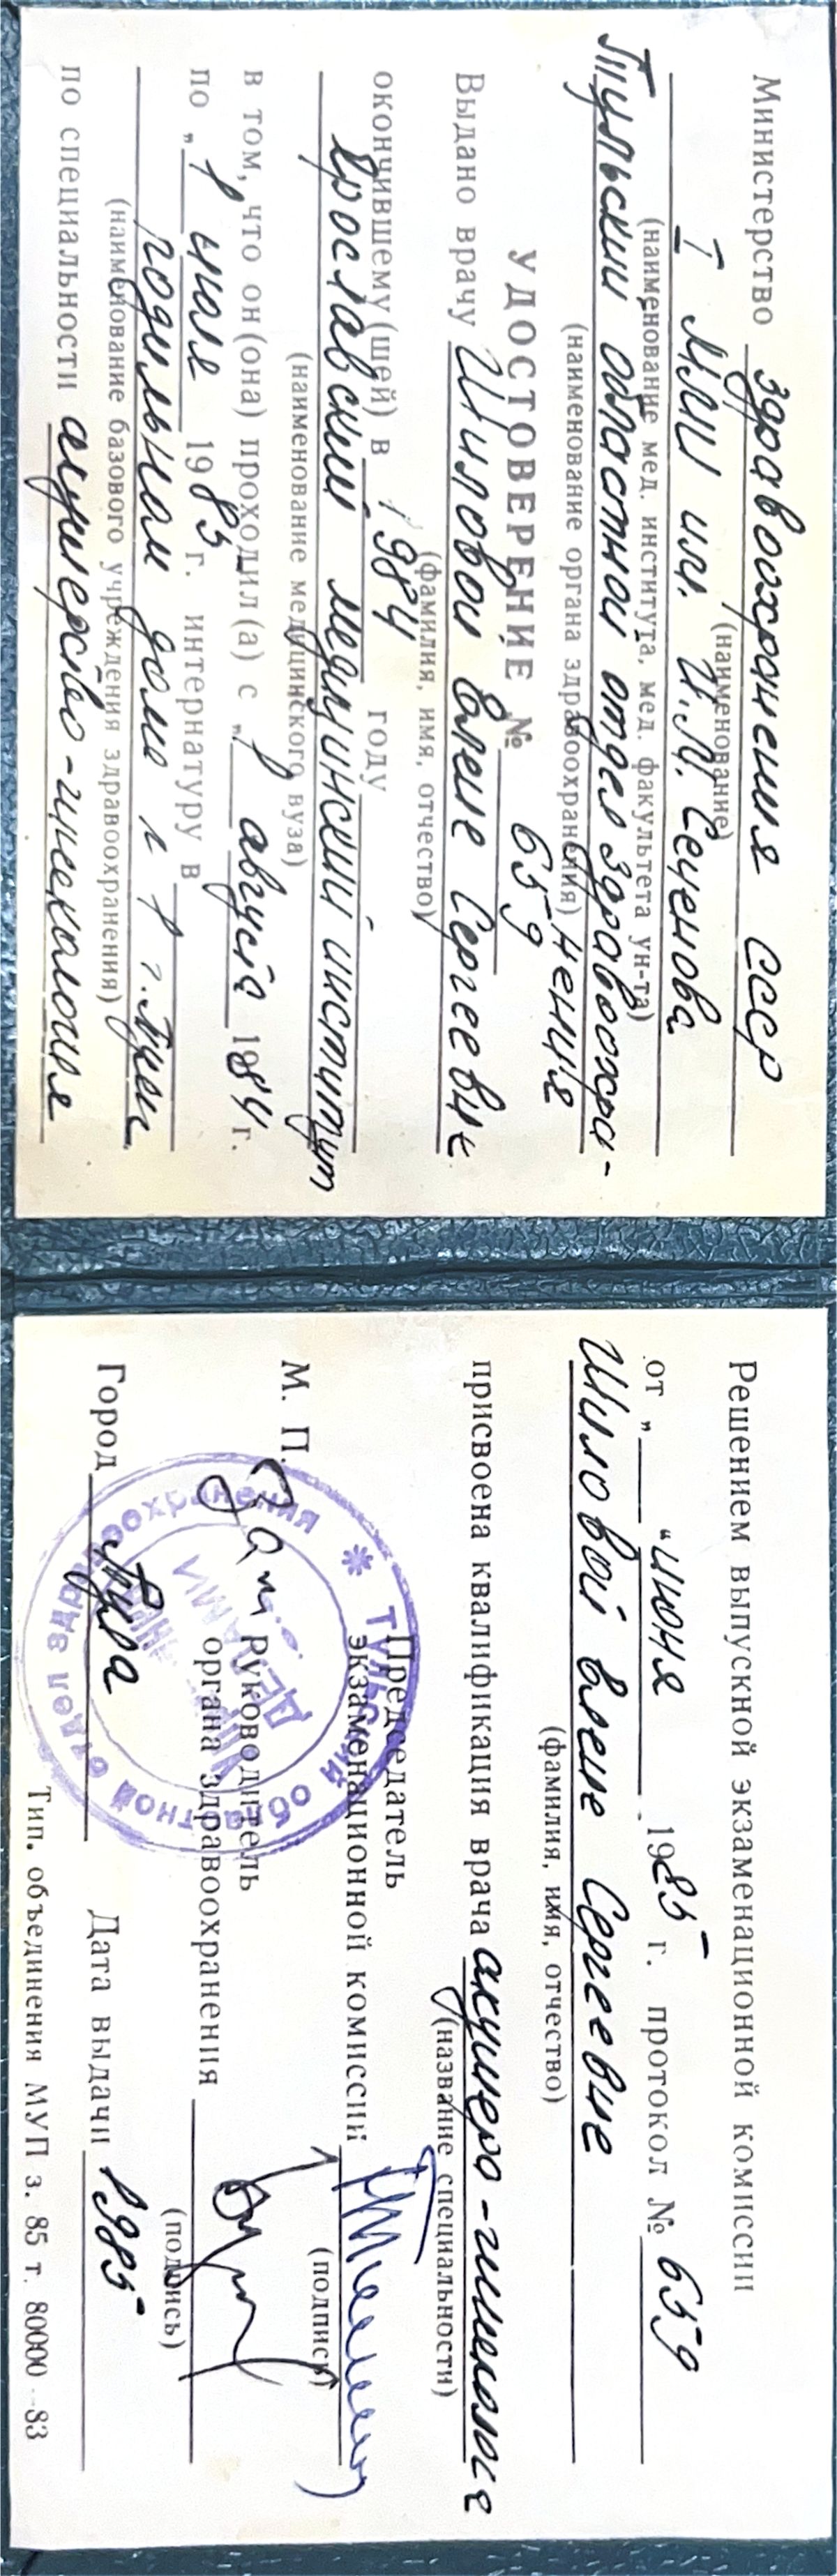 Министерство здравоохранения СССР
(наименование)
I ММИ им. И.М. Сеченова
(наименование мед. института, мед. факультета ун-та)
Тульский областной отдел здравоохра-
(наименование органа здравоохранения) нения
УДОСТОВЕРЕНИЕ № 659
Выдано врачу Шиловой Елене Сергеевне
(фамилия, имя, отчество)
окончившему (шей) в 1984 году
Ярославский медицинский институт
(наименование медицинского вуза)
в том, что он (она) проходил (а) с „1 августа 1984 г.
по „1 июля 1985 г. интернатуру в
родильном доме № 1 г. Тулы
(наименование базового учреждения здравоохранения)
по специальности акушерство-гинекология
Решением выпускной экзаменационной комиссии
от „ “ июня 1985 г. протокол № 659
Шиловой Елене Сергеевне
(фамилия, имя, отчество)
присвоена квалификация врача акушера-гинеколога
(название специальности)
Председатель
экзаменационной комиссии
(подпись)
М. П. Зам. Руководитель
органа здравоохранения
(подпись)
Город Тула Дата выдачи 1985
Тип. объединения МУП з. 85 т. 80000—83
* ТУЛЬСКИЙ областной отдел здравоохранения